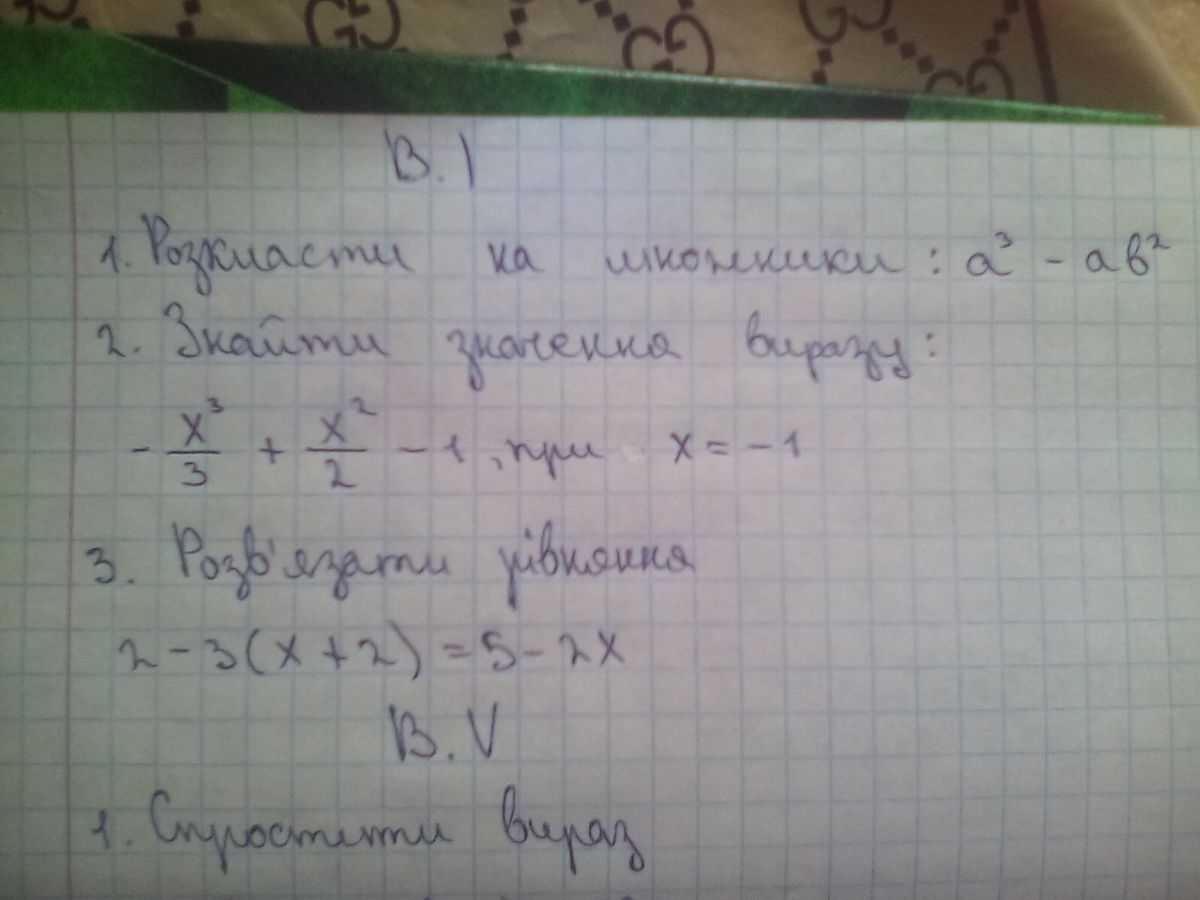 В. I
1. Розкласти на множники: a³ - ab²
2. Знайти значення виразу:
- x³/3 + x²/2 - 1, при x = -1
3. Розв'язати рівняння
2 - 3(x + 2) = 5 - 2x
В. V
1. Спростити вираз